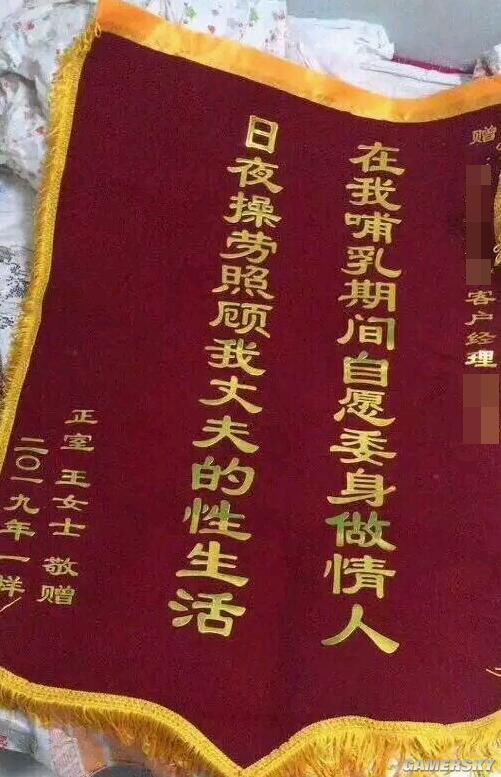 赠
客户经理
在我哺乳期间自愿委身做情人
日夜操劳照顾我丈夫的性生活
正室 王女士 敬赠
二〇一九年一样
GAMERSKY